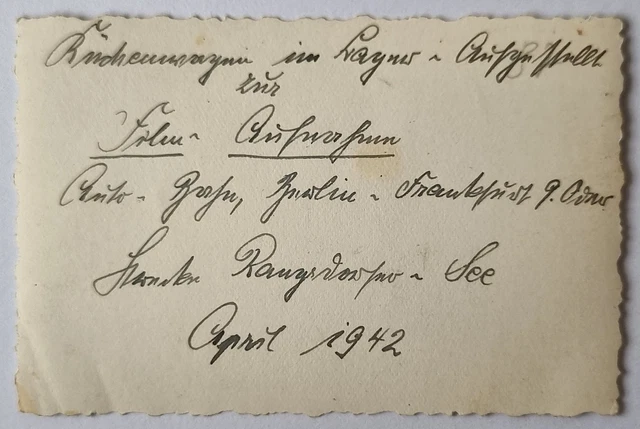 Küchenwagen im Lager - Aufgestellt
zur
Film- Aufnahme
Auto- Bahn, Berlin - Frankfurt a. Oder
Strecke Rangsdorfer - See
April 1942